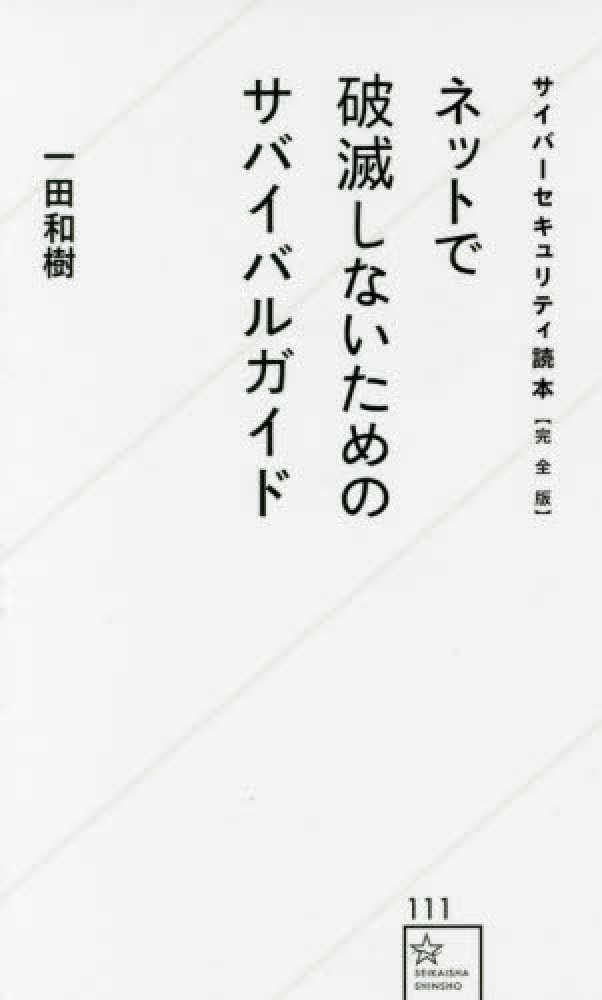 サイバーセキュリティ読本【完全版】
ネットで
破滅しないための
サバイバルガイド
一田和樹
111
SEIKAISHA
SHINSHO